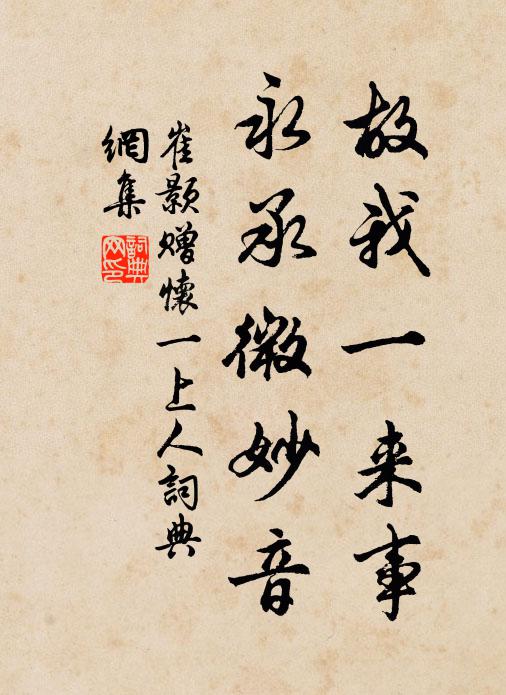 故我一来事
永承微妙音
崔颢赠懷一上人詞典
網集
詞典
网印